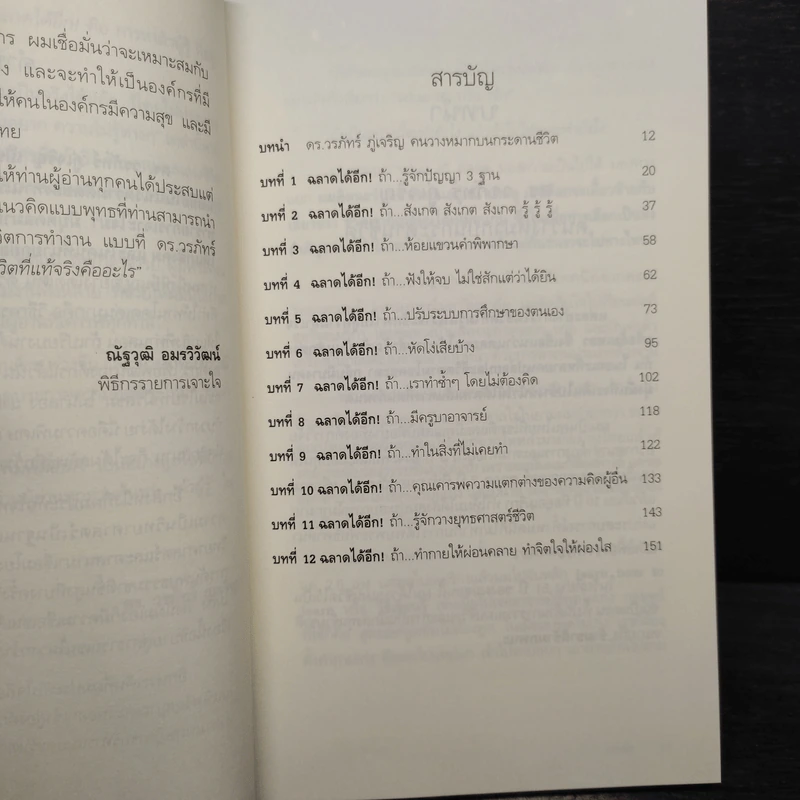 าร ผมเชื่อมั่นว่าจะเหมาะสมกับ
ง และจะทำให้เป็นองค์กรที่มี
ให้คนในองค์กรมีความสุข และมี
ทย
ให้ท่านผู้อ่านทุกคนได้ประสบแต่
แนวคิดแบบพุทธที่ท่านสามารถนำ
วิตการทำงาน แบบที่ ดร.วรภัทร์
วิตที่แท้จริงคืออะไร"
ณัฐวุฒิ อมรวิวัฒน์
พิธีกรรายการเจาะใจ
สารบัญ
บทนำ ดร.วรภัทร์ ภู่เจริญ คนวางหมากบนกระดานชีวิต 12
บทที่ 1 ฉลาดได้อีก! ถ้า...รู้จักปัญญา 3 ฐาน 20
บทที่ 2 ฉลาดได้อีก! ถ้า...สังเกต สังเกต สังเกต รู้ รู้ รู้ 37
บทที่ 3 ฉลาดได้อีก! ถ้า...ห้อยแขวนคำพิพากษา 58
บทที่ 4 ฉลาดได้อีก! ถ้า...ฟังให้จบ ไม่ใช่สักแต่ว่าได้ยิน 62
บทที่ 5 ฉลาดได้อีก! ถ้า...ปรับระบบการศึกษาของตนเอง 73
บทที่ 6 ฉลาดได้อีก! ถ้า...หัดโง่เสียบ้าง 95
บทที่ 7 ฉลาดได้อีก! ถ้า...เราทำซ้ำๆ โดยไม่ต้องคิด 102
บทที่ 8 ฉลาดได้อีก! ถ้า...มีครูบาอาจารย์ 118
บทที่ 9 ฉลาดได้อีก! ถ้า...ทำในสิ่งที่ไม่เคยทำ 122
บทที่ 10 ฉลาดได้อีก! ถ้า...คุณเคารพความแตกต่างของความคิดผู้อื่น 133
บทที่ 11 ฉลาดได้อีก! ถ้า...รู้จักวางยุทธศาสตร์ชีวิต 143
บทที่ 12 ฉลาดได้อีก! ถ้า...ทำกายให้ผ่อนคลาย ทำจิตใจให้ผ่องใส 151